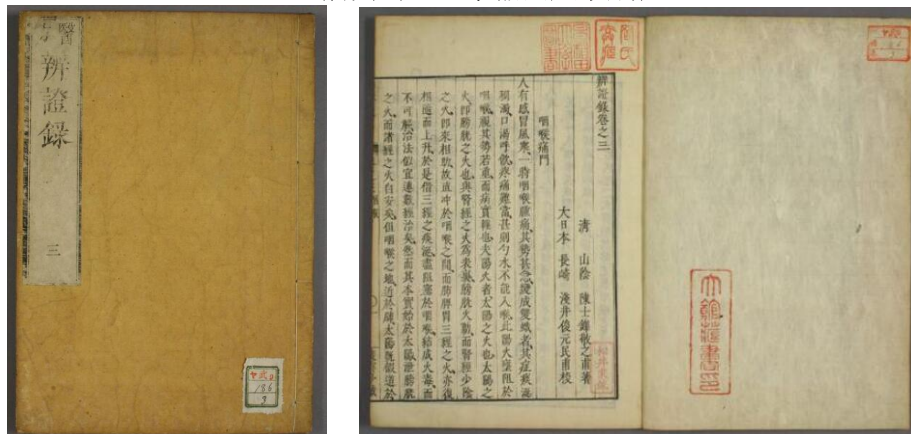 醫
辨證錄
三
辨證錄卷之三
清 山陰 陳士鐸敬之甫著
大日本 長崎 淺井俊元民甫校
咽喉痛門
人有感冒風寒一時咽喉腫痛其勢甚急變成雙蛾者其症痰涎
稠濁口渴呼飲疼痛難當甚則勺水不能入喉此陽火壅阻於
咽喉視其勢若重而病實輕也夫陽火者太陽之火也太陽之
火即膀胱之火也與腎經之火為表裏膀胱火動而腎經少陰
之火即來相助故直冲於咽喉之間而肺脾胃三經之火亦復
相随而上升於是借三經之痰涎盡阻塞於咽喉結成火毒而
不可解治法似宜連數經治矣然而其本實始於太陽泄膀胱
之火而諸經之火自安矣但咽喉之地近於肺太陽既假道於